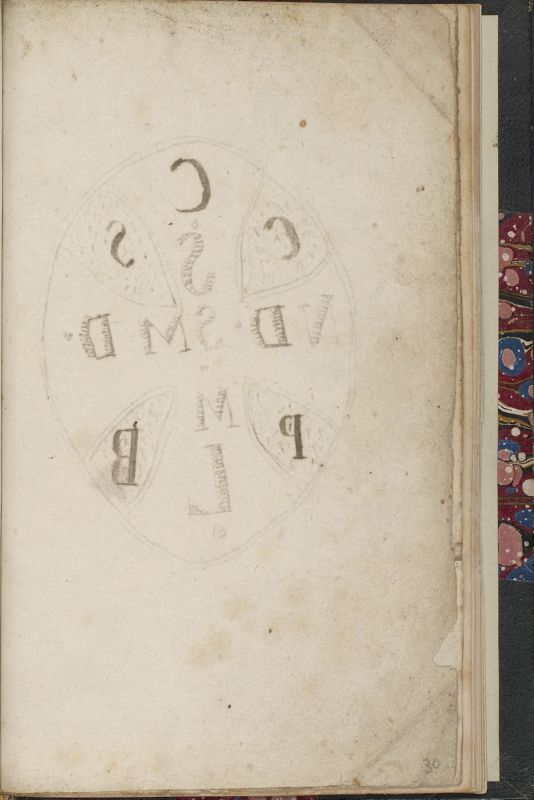 C
C S
S
N D S M D
M
P B
L
30